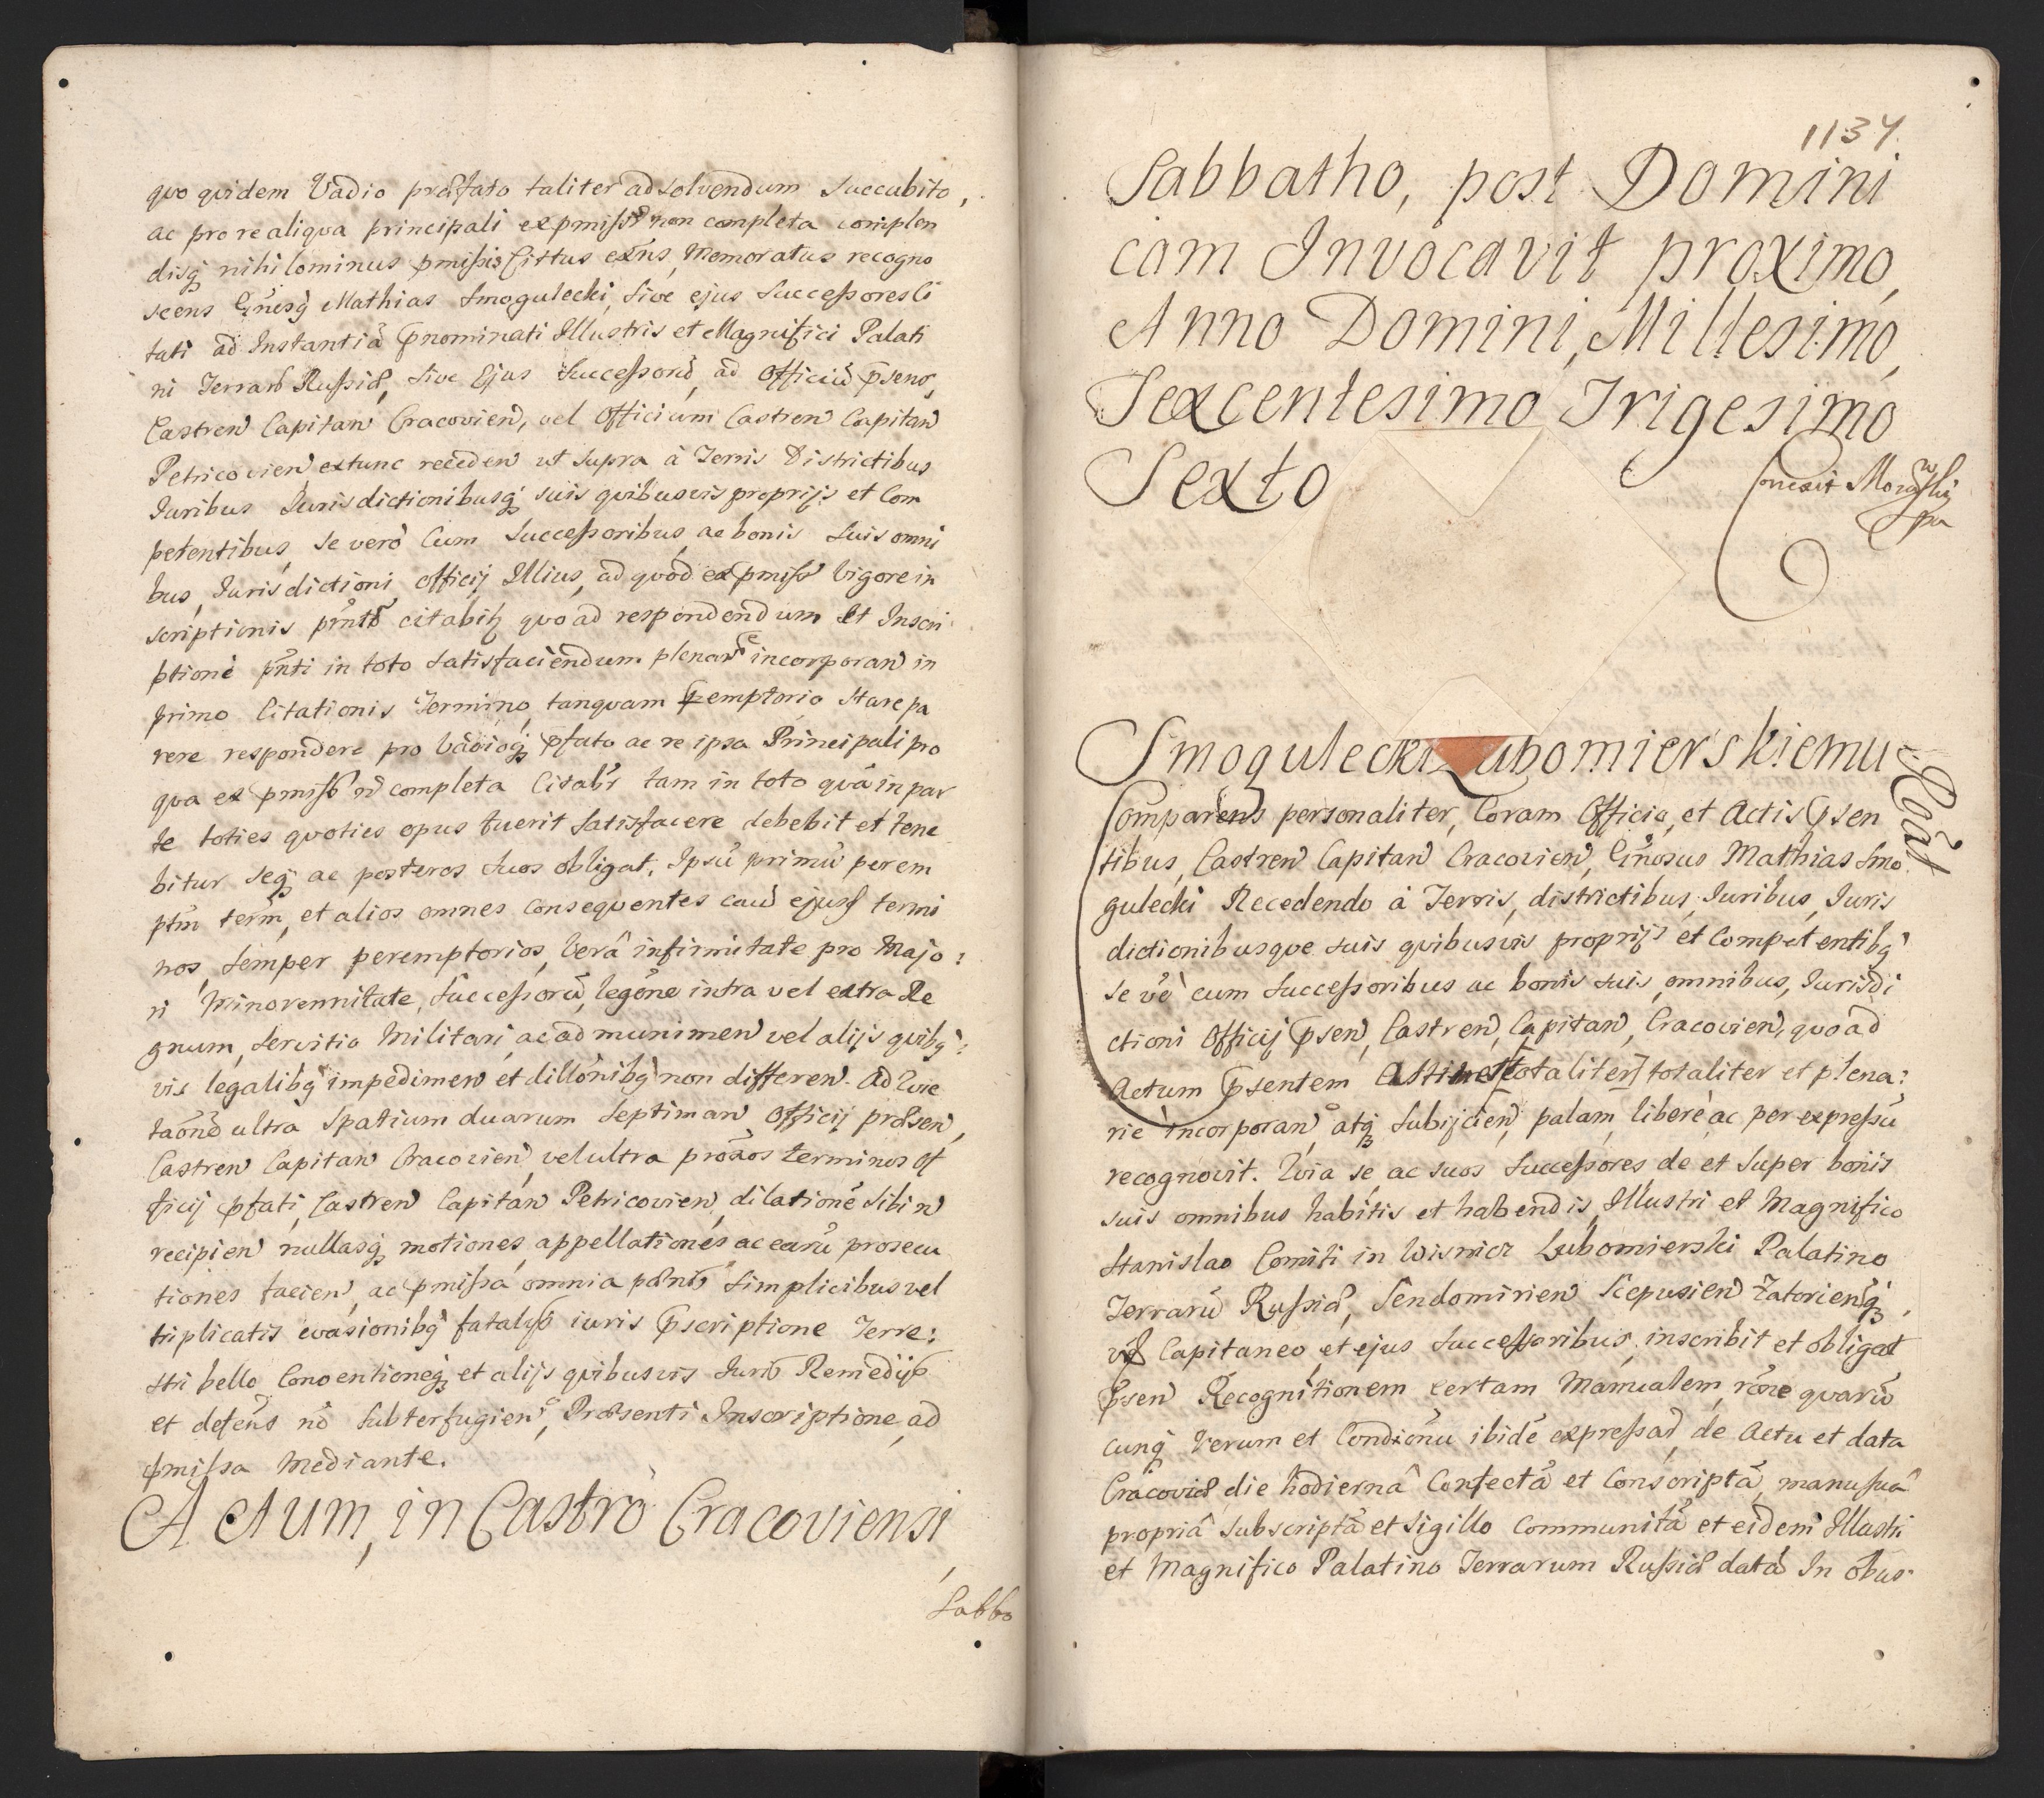 quo quidem Vadio præfato taliter ad solvendum succubito,
ac pro re aliqva principali expmiss non completa complen
disq nihilominus pmissis Cittus exns, Memoratus recogno
scens Gnosq Mathias Smogulecki, sive ejus Successores Ci
tati ad Instantiã pnominati Illustris et Magnifici Palati
ni Terrarũ Russiæ, sive Ejus Successorũ, ad Officiũ psens,
Castren Capitan Cracovien, vel Officium Castren Capitan
Petricovien extunc receden ut supra à Terris Districtibus
Iuribus Iurisdictionibusq suis qvibusvis proprijs et Com
petentibus, se verò Cum Successoribus ac bonis suis omni
bus, Iurisdictioni Officij Illius, ad quod ex pmiss Vigore in
scriptionis pnts citabitr quo ad respondendum Et Inscri
ptionè pnti in toto satisfaciendum plenarie incorporan in
primo Citationis Termino, tanquam pemptorio Stare pa
rere respondere pro Vadioq pfato ac re ipsa Principali pro
qva ex pmiss nõ completa Citabr tam in toto quã in par
te toties quoties opus fuerit satisfacere debebit et tene
bitur seq ac posteros suos obligat. Ipsũ primũ perem
ptm term, et alios omnes Conseqventes caus ejusd termi
nos semper peremptorios, Verâ infirmitate pro Majo:
ri Minorennitate Successorũ, legõne intra vel extra Re
gnum, servitio Militari, ac ad munimen vel alijs qvibq:
vis legalibq impedimen et dillõnibq non differen. Ad Que
taõnẽ ultra Spatium duarum Septiman Officij præsen,
Castren Capitan Cracovien vel ultra prõãos terminos Of
ficij pfati Castren Capitan Petricovien, dilationẽ sibi n
recipien nullasq motiones, appellationes ac earũ prosecu
tiones facien, ac pmissa omnia pænis simplicibus vel
triplicatis evasionibq fatalijs iuris pscriptione Terre:
stri bello Conventioneq et alijs quibusvis Iuris Remedijs
et defens nõ subterfugien, Præsenti Inscriptione ad
pmissa Mediante.
Actum, in Castro Cracoviensi,
Sabba
1134
Sabbatho, post Domini
cam Invocavit proximo,
Anno Domini, Millesimo,
Sexcentesimo Trigesimo
Sexto
Smogulecki Lubomierskiemu
Comparens personaliter, Coram Officio, et Actis psen
tibus, Castren Capitan Cracovien, Gnosus Mathias Smo
gulecki Recedendo à Terris, districtibus, Iuribus, Iuris
dictionibusque suis qvibusvis proprijs et Competentibq
se vẽ cum Successoribus ac bonis suis, omnibus, Iurisdi
ctioni Officij psen, Castren, Capitan, Cracovien, quo ad
Actum psentem totaliter totaliter et plena:
riè incorporan atq subijcien, palam, liberè ac per expressũ
recognovit. Qvia se, ac suos Successores de et super bonis
suis omnibus habitis et habendis, Illustri et Magnifico
Stanislao Comiti in Wisnicz Lubomierski Palatino
Terrarũ Russiæ, Sendomirien Scepusien Zatorienq,
Capitaneo, et ejus Successoribus, inscribit et obligat
psen Recognitionem certam Manualem, rõne quarũ
cunq rerum et Condiõnũ ibidẽ expressad, de Actu et data
Cracoviæ die hodiernâ Confectã et Conscriptã, manu suâ
propriâ subscriptã et sigillo communitã et eidem Illustri
et Magnifico Palatino Terrarum Russiæ datã In oĩbus